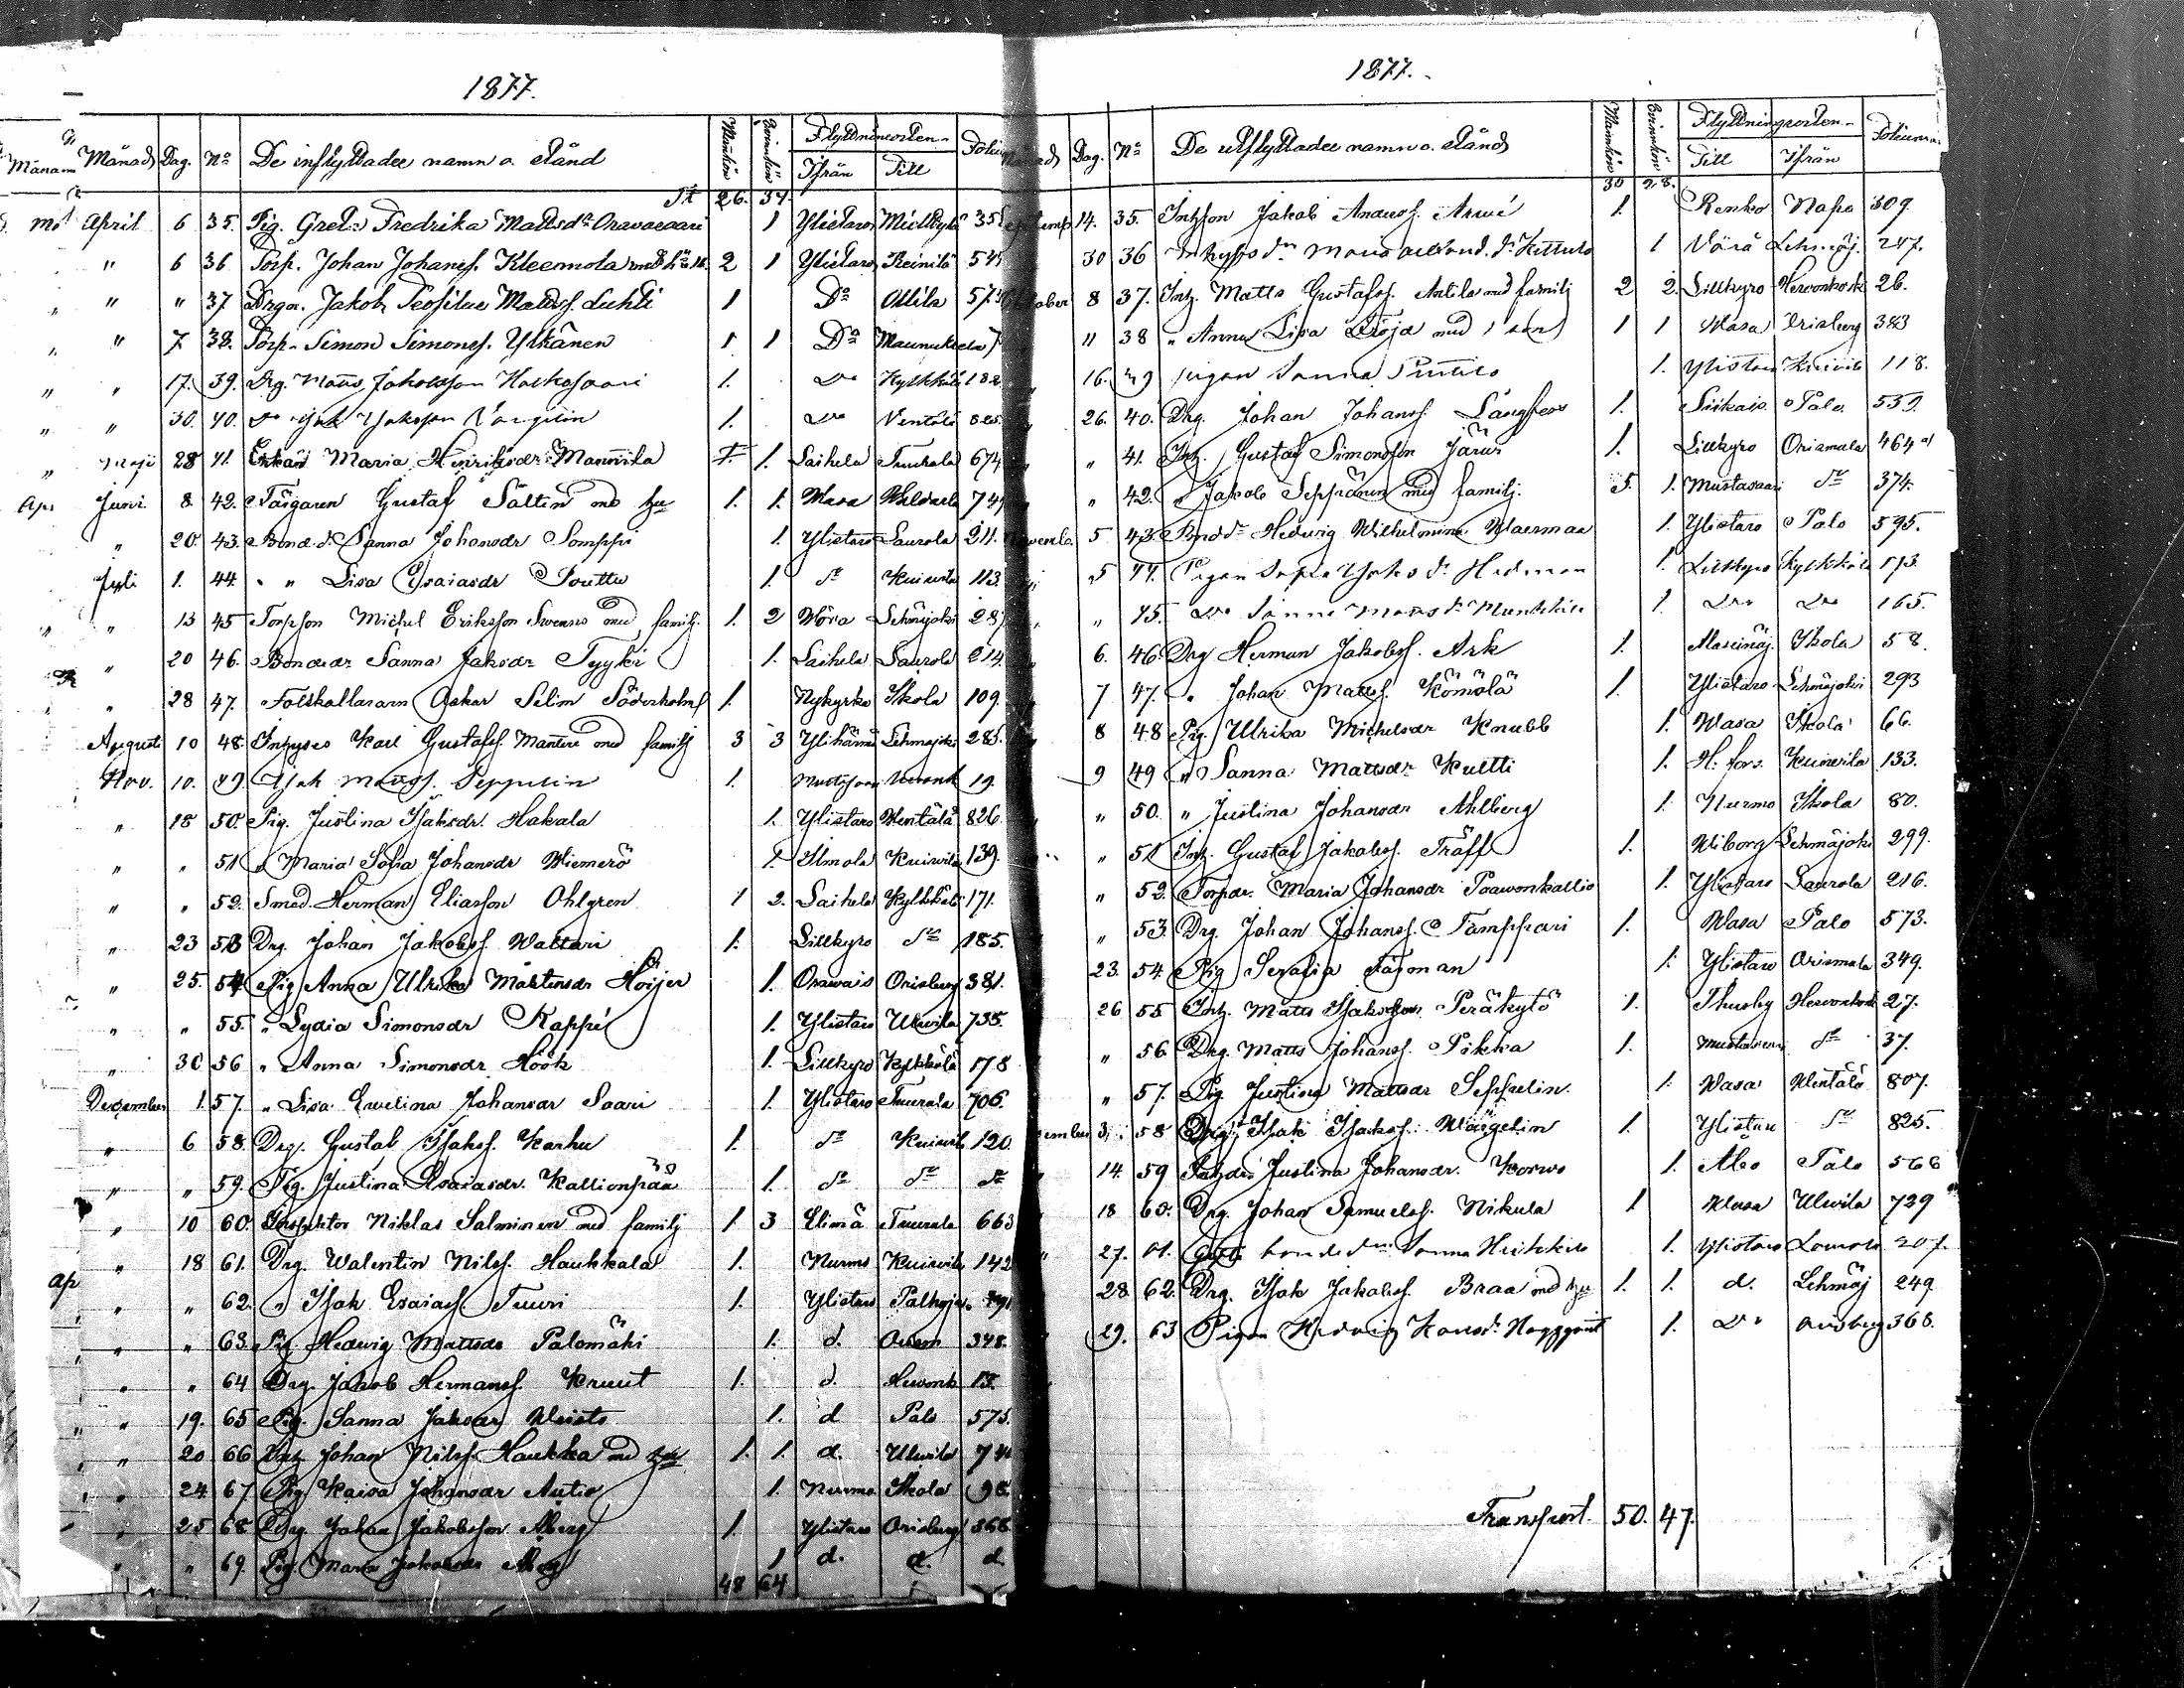 1877.
Månad Dag. No De inflyttades namn o. stånd Mankön Qvinnkön Flyttningsorten Ifrån Till Folium
26. 34.
April 6 35. Pig. Greta Fredrika Mattsdr Oravasaari 1 Ylistaro 35
" 6 36 Torp. Johan Johanss. Kleemola 2 1 Ylistaro Reinilä 54
" " 37 Drgn. Jakob Teofilus Mattss. Luhti 1 Do Ollila 573
" 7 38. Torp. Simon Simonss. Ylkänen 1 1 Do Maunuksela 7
" 17. 39. Drg. Matts Jakobsson Koskosaari 1. Do Kylkkälä 182
" 30. 40. Do Isak Isaksson Värgelin 1. Do Ventälä 825.
Maji 28 41. Enkan Maria Henriksdr Mannila 1. Laihela Tuurala 674
Juni 8 42. Färgaren Gustaf Sältin med hu 1. 1. Wasa 74
" 20. 43. Bond.d. Sanna Johansdr Somppi 1. Ylistaro Laurola 211.
Juli 1. 44. " " Lisa Esaiasdr Pouttu 1. do Kuiwila 113.
" 13 45 Torpson Michel Eriksson Swenns med familj. 1. 2 Wörå Lehmäjoki 28
" 20 46. Bondedr Sanna Jaksdr Tyyki 1. Laihela Laurola 214.
" 28 47. Folkskollararn Oskar Selim Söderholm 1. Nykyrko Ikola 109.
Augusti 10 48. Inhyses Karl Gustafss. Mantere med familj 3 3 Ylihärmä Lehmäjoki 285.
Nov. 10. 49. Isak Mattss. Seppelin 1. 19.
" 18 50. Pig. Justina Isaksdr. Hakala 1. Ylistaro Wentälä 826.
" " 51 " Maria Sofia Johansdr Wiemerö 1. Ilmola Kuiwila 139.
" " 52. Smed. Herman Eliasson Ohlgren 1 2. Laihela Kylkkälä 171.
" 23 53 Drg. Johan Jakobss. Waltari 1. Lillkyro do 185.
" 25. 54 Pig Anna Ulrika Mårtensdr Höijer 1. Orawais Orisberg 381.
" " 55. " Lydia Simonsdr Kappé 1. Ylistaro Ulwila 735.
" 30 56 " Anna Simonsdr Höök 1. Lillkyro Kylkkälä 178
December 1. 57. " Lisa Ewelina Johansdr Saari 1. Ylistaro Tuurala 706.
" 6 58. Drg. Gustaf Isakss. Karhu 1. do Kuiwila 120.
" " 59. Pig. Justina Esaiasdr. Kallionpää 1. do do do
" 10 60. Inspektor Niklas Salminen med familj 1. 3 Elimä Tuurala 663
" 18 61. Drg. Walentin Nilss. Haukkala 1. Nurmo Kuiwila 142
" " 62. " Isak Esaiass. Tuuri 1. Ylistaro
" " 63. Pig. Hedwig Mattsdr Palomäki 1. d. Orism 348.
" " 64 Drg. Jakob Hermanss. Kruut 1. d. Herwonk 13.
" 19. 65 Pig. Sanna Jaksdr Wuisto 1. d Palo 575.
" 20 66 Drg Johan Nilss. Haukka med hu 1. 1. d. Ulwila 74
" 24 67 Pig Kaisa Johansdr Autio 1. Nurmo Ikola 98
" 25 68 Drg Johan Jakobsson Åberg 1. Ylistaro Orisberg 368
" " 69. Pig. Maria Jakobsdr Åberg 1 d. d. d.
48 64
1877.
Dag. No De utflyttades namn o. stånd Mankön Qvinnkön Flyttningsorten Till Ifrån Folium
30 28.
Septemb 14. 35. Inhson Jakob Anderss. Arwé 1. Renko Napo 309.
30 36 1 Vörå Lehmäj. 247.
October 8 37. Inh. Matts Gustafss. Antila med familj 2 2. Lillkyro Herwonkoski 26.
" 38 " Anna Lisa Fröjd med 1 son 1 1 Wasa Orisberg 383
16. 39 Pigan Sanna Penttilä 1. Ylistaro Kuiwila 118.
26. 40. Drg. Johan Johanss. Långfors 1. Siikais. Palo. 539.
" 41. Inh. Gustaf Simonsson Järwi 1. Lillkyro Orismala 464
" 42. " Jakob Seppänen med familj. 5. 1. Mustasaari do 374.
Novemb. 5 43. Bnddr Hedwig Wilhelmina Waermaa 1. Ylistaro Palo 595.
5 44. Pigan Sofia Jaksdr Hedman 1. Lillkyro Kylkkälä 173.
" 45. Do Sanna Mattsdr Munkkila 1. Do Do 165.
6. 46. Drg Herman Jakobss. Ark 1. Ikola 58.
7 47. " Johan Mattss. Kömölä 1. Ylistaro Lehmäjoki 293
8 48 Pig. Ulrika Michelsdr Knubb 1. Wasa Ikola 66.
9 49 " Sanna Mattsdr Kultti 1. H. fors. Kuiwila 133.
" 50. " Justina Johansdr Ahlberg 1. Nurmo Ikola 80.
" 51 Inh. Gustaf Jakobss. Träff 1. Wiborg Lehmäjoki 299.
" 52. Torpdr. Maria Johansdr Paawonkallio 1. Ylistaro Laurola 216.
" 53. Drg. Johan Johanss. Tamppari 1. Wasa Palo 573.
23. 54. Pig Serafia Fägman 1. Ylistaro Orismala 349.
26 55 Inh. Matts Isaksson Peräkylö 1. Thusby Herwonkoski 27.
" 56 Drg. Matts Johanss. Pikka 1. Mustasaari do 37.
" 57. Pig Justina Mattsdr Seppelin. 1. Wasa Wentälä 807.
December 3. 58 Drg. Isak Isakss. Wärgelin 1. Ylistaro do 825.
14. 59 Justina Johansdr. Korwo 1. Åbo Palo 566
18 60. Drg. Johan Samuelss. Nikula 1 Wasa Ulwila 729
27. 61. Sanna 1. Ylistaro Laurola 207.
28. 62. Drg. Isak Jakobss. Braa med hu 1. 1. d. Lehmäj 249.
29. 63 Pigan Hedwig 1. Do Orisberg 368.
Transport. 50. 47.